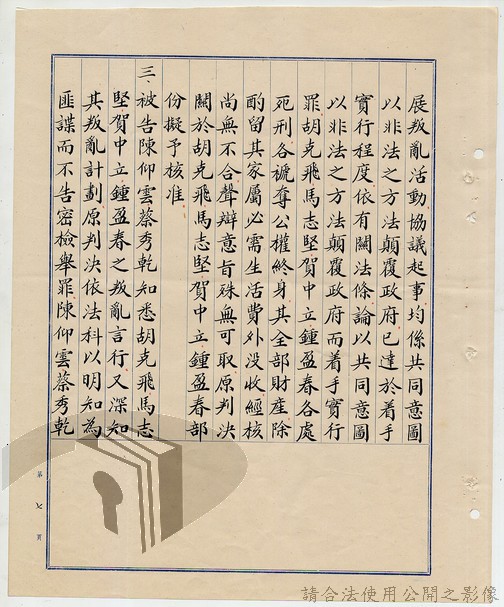 展叛亂活動協議起事均係共同意圖
以非法之方法顛覆政府已達於着手
實行程度依有關法條論以共同意圖
以非法之方法顛覆政府而着手實行
罪胡克飛馬志堅賀中立鍾盈春各處
死刑各褫奪公權終身其全部財產除
酌留其家屬必需生活費外沒收經核
尚無不合聲辯意旨殊無可取原判決
關於胡克飛馬志堅賀中立鍾盈春部
份擬予核准
三、被告陳仰雲蔡秀乾知悉胡克飛馬志
堅賀中立鍾盈春之叛亂言行又深知
其叛亂計劃原判決依法科以明知為
匪諜而不告密檢舉罪陳仰雲蔡秀乾
第七頁
請合法使用公開之影像